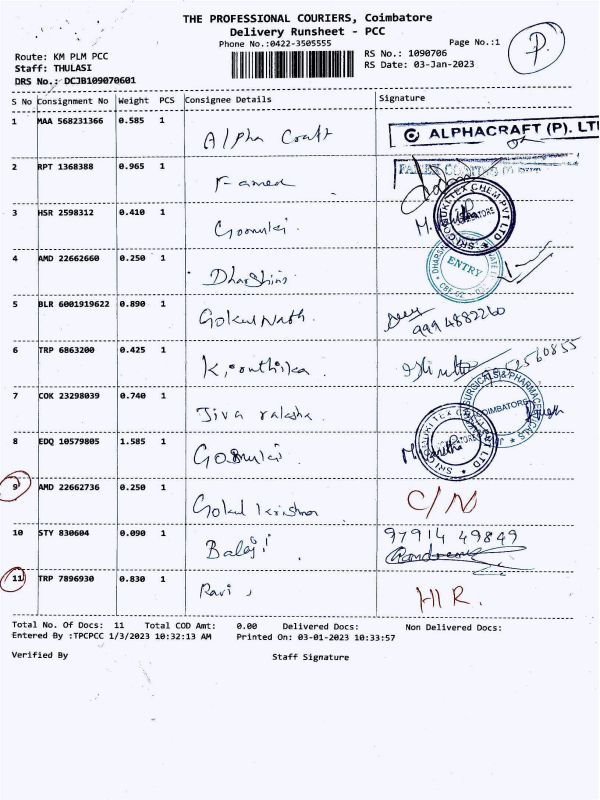 THE PROFESSIONAL COURIERS, Coimbatore
Delivery Runsheet - PCC
Phone No.:0422-3505555
Page No.:1
P.
Route: KM PLM PCC
RS No.: 1090706
Staff: THULASI
RS Date: 03-Jan-2023
DRS No.: DCJB109070601
S No Consignment No Weight PCS Consignee Details Signature
1 MAA 568231366 0.585 1 Alpha Craft ALPHACRAFT (P). LT
2 RPT 1368388 0.965 1 Famed
3 HSR 2598312 0.410 1 Gomuki. SRI GOMUKI TEX CHEM PVT LTD
4 AMD 22662660 0.250 1 Dharshini ENTRY
5 BLR 6001919622 0.890 1 Gokul Nath. 9994882260
6 TRP 6863200 0.425 1 Kirthika.
7 COK 23298039 0.740 1 Jiva raksha. SURGICALS & PHARMACEUTICALS COIMBATORE
8 EDQ 10579805 1.585 1 Gomuki
9 AMD 22662736 0.250 1 Gokul krishna C/N
10 STY 830604 0.090 1 Balaji. 97914 49849
11 TRP 7896930 0.830 1 Ravi, HR.
Total No. Of Docs: 11 Total COD Amt: 0.00 Delivered Docs: Non Delivered Docs:
Entered By :TPCPCC 1/3/2023 10:32:13 AM Printed On: 03-01-2023 10:33:57
Verified By Staff Signature